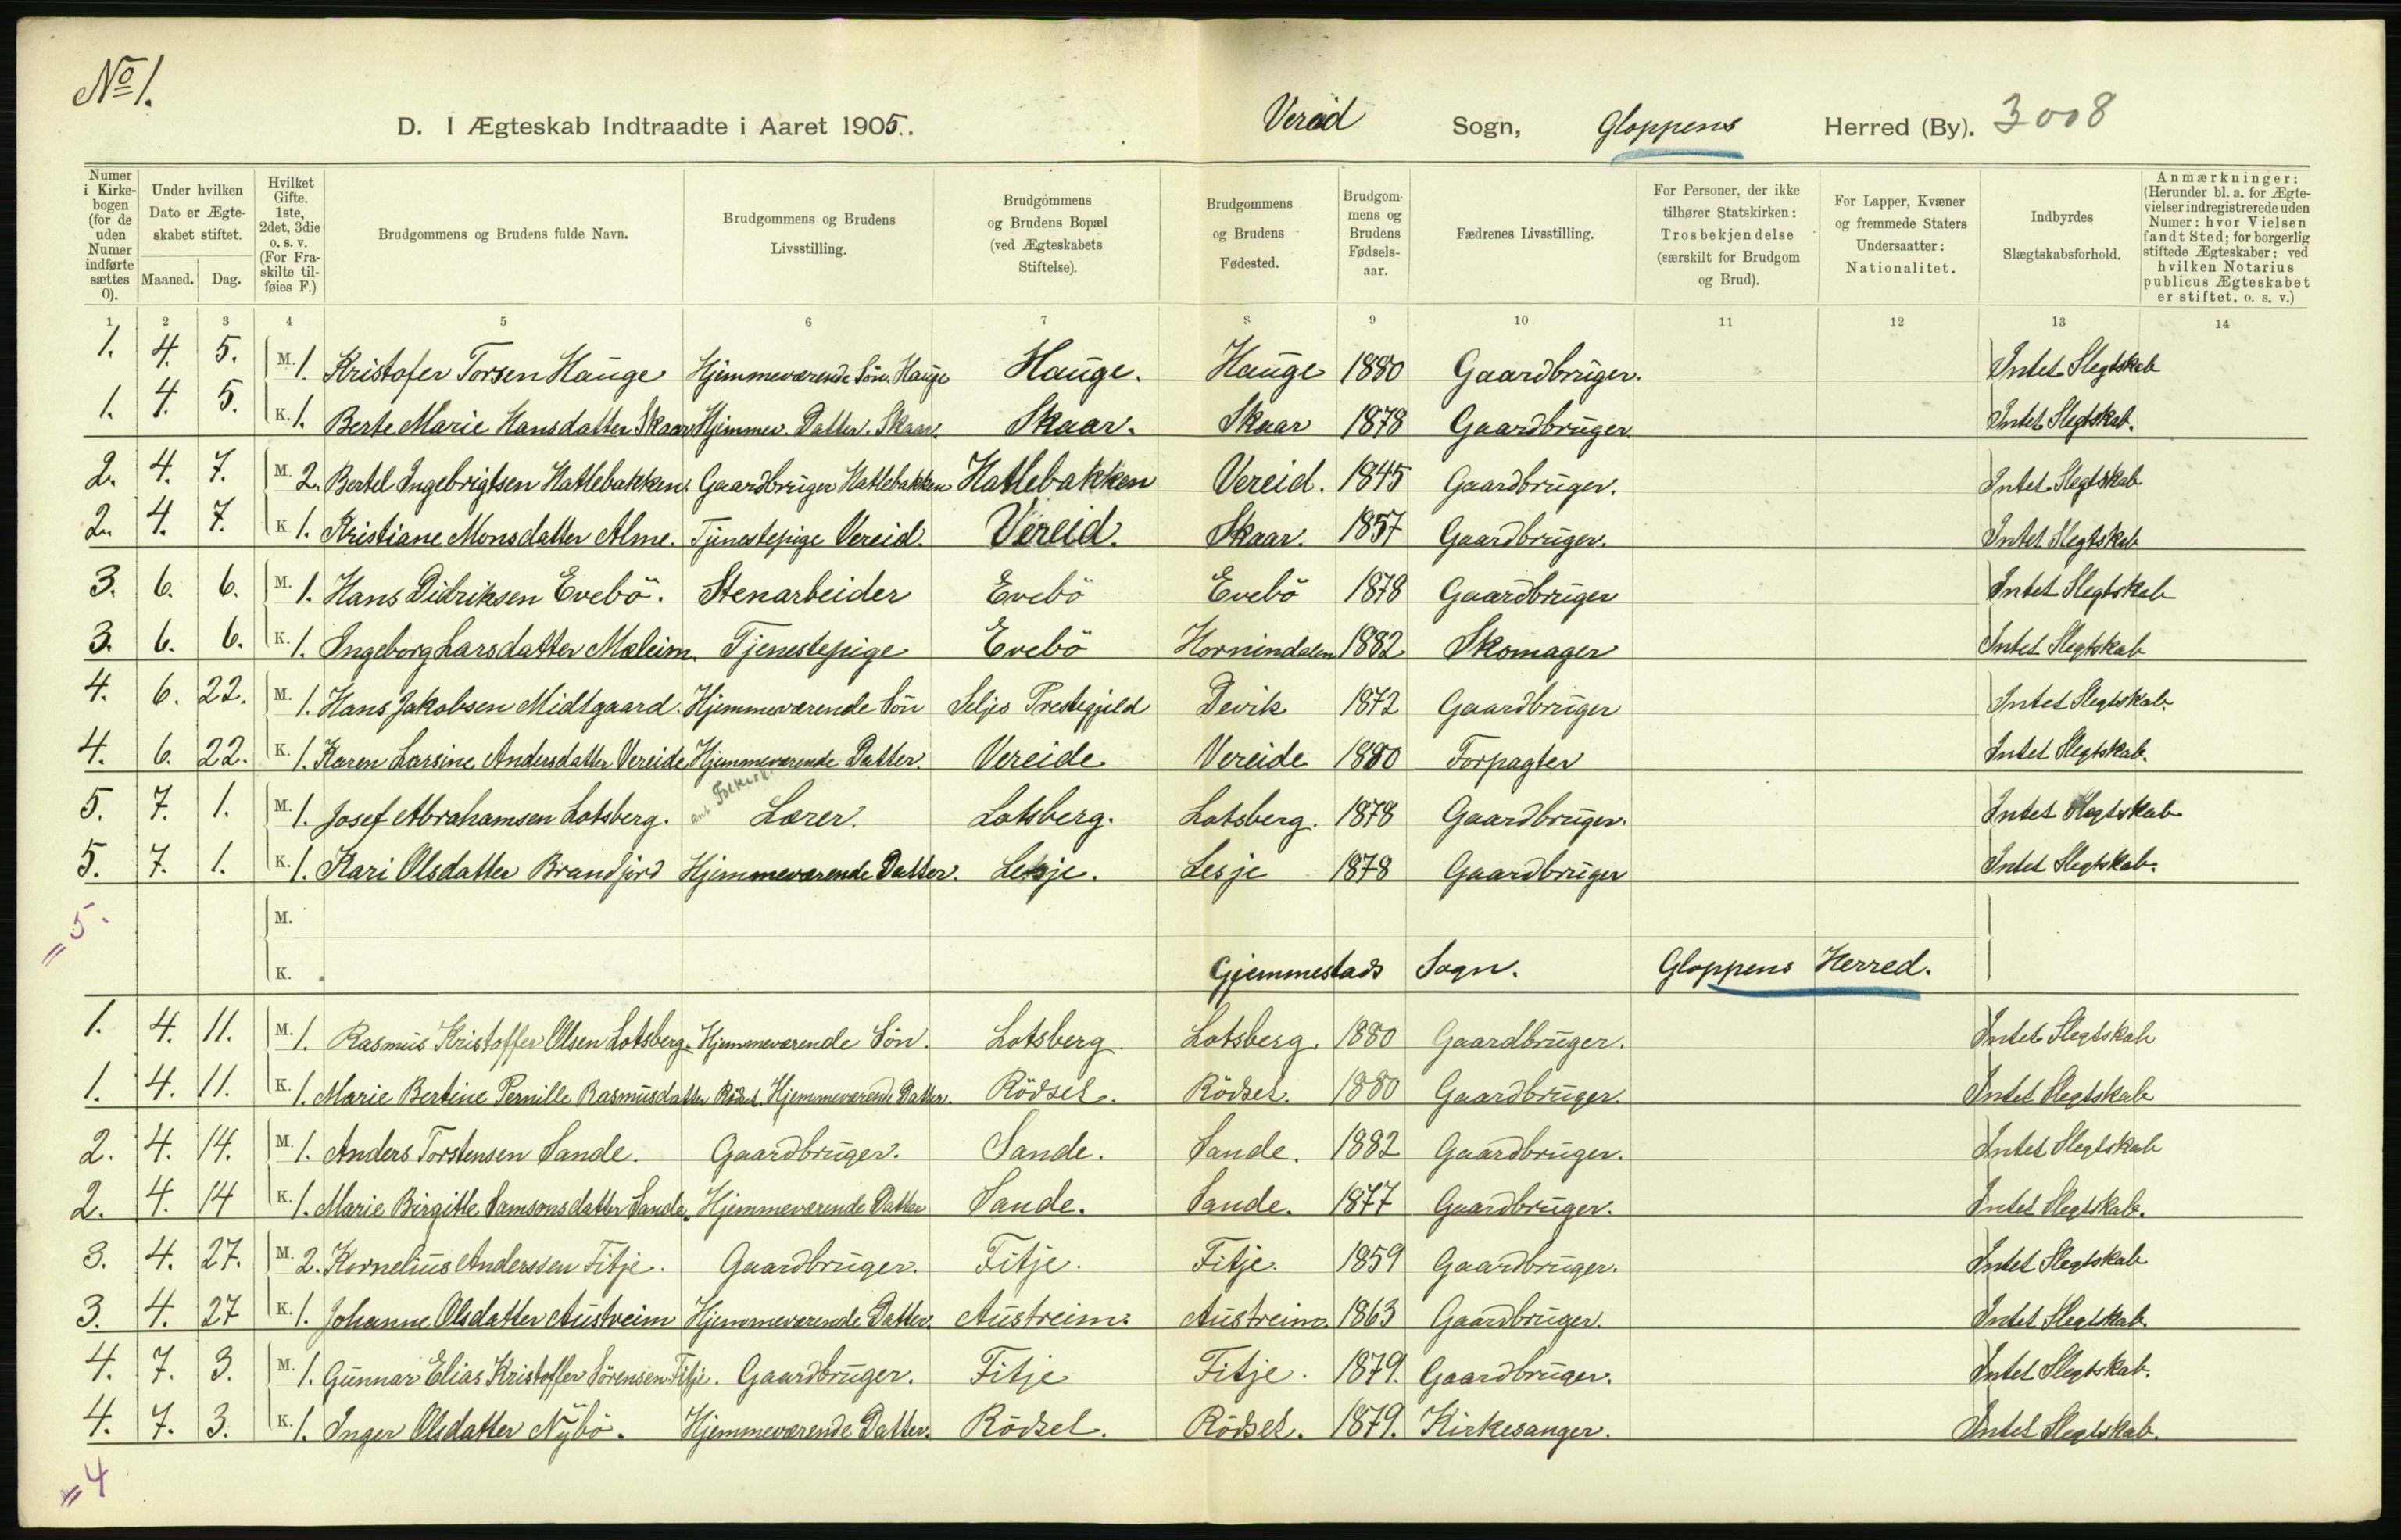 No 1.
D. I Ægteskab Indtraadte i Aaret 1905. Vereid Sogn, Gloppens Herred (By). 3008
Numer i Kirkebogen (for de uden Numer indførte sættes 0).
Under hvilken Dato er Ægteskabet stiftet.
Maaned. Dag.
Hvilket Gifte. 1ste, 2det, 3die o. s. v. (For Fraskilte tilføies F.)
Brudgommens og Brudens fulde Navn.
Brudgommens og Brudens Livsstilling.
Brudgommens og Brudens Bopæl (ved Ægteskabets Stiftelse).
Brudgommens og Brudens Fødested.
Brudgommens og Brudens Fødselsaar.
Fædrenes Livsstilling.
For Personer, der ikke tilhører Statskirken: Trosbekjendelse (særskilt for Brudgom og Brud).
For Lapper, Kvæner og fremmede Staters Undersaatter: Nationalitet.
Indbyrdes Slægtskabsforhold.
Anmærkninger: (Herunder bl. a. for Ægtevielser indregistrerede uden Numer: hvor Vielsen fandt Sted; for borgerlig stiftede Ægteskaber: ved hvilken Notarius publicus Ægteskabet er stiftet, o. s. v.)
1 2 3 4 5 6 7 8 9 10 11 12 13 14
1. 4. 5. M. 1. Kristofer Torsen Hauge Hjemmeværende Søn. Hauge Hauge. Hauge 1880 Gaardbruger. Intet Slegtskab
1. 4. 5. K. 1. Berte Marie Hansdatter Skaar Hjemmev. Datter. Skaar. Skaar. Skaar 1878 Gaardbruger. Intet Slegtskab.
2. 4. 7. M. 2. Bertel Ingebrigtsen Hatlebakken. Gaardbruger Hatlebakken Hatlebakken Vereid. 1845 Gaardbruger. Intet Slegtskab
2. 4. 7. K. 1. Kristiane Monsdatter Alme. Tjenestepige Vereid. Vereid. Skaar. 1857 Gaardbruger. Intet Slegtskab
3. 6. 6. M. 1. Hans Didriksen Evebö. Stenarbeider Evebö Evebö 1878 Gaardbruger Intet Slegtskab
3. 6. 6. K. 1. Ingeborg Larsdatter Maleim. Tjenestepige Evebö Hornindalen 1882 Skomager Intet Slegtskab
4. 6. 22. M. 1. Hans Jakobsen Midtgaard. Hjemmeværende Sön Seljes Prestegjeld Devik 1872 Gaardbruger Intet Slegtskab.
4. 6. 22. K. 1. Karen Larsine Andersdatter Vereide Hjemmeværende Datter. Vereide Vereide 1880 Forpagter Intet Slegtskab.
5. 7. 1. M. 1. Josef Abrahamsen Lotsberg. Lærer. Lotsberg. Lotsberg. 1878 Gaardbruger. Intet Slegtskab
5. 7. 1. K. 1. Kari Olsdatter Brandjord Hjemmeværende Datter. Lesje. Lesje 1878 Gaardbruger Intet Slegtskab.
= 5. M.
K. Gjemmestads Sogn. Gloppens Herred.
1. 4. 11. M. 1. Rasmus Kristoffer Olsen Lotsberg. Hjemmeværende Sön. Lotsberg. Lotsberg. 1880 Gaardbruger. Intet Slegtskab
1. 4. 11. K. 1. Marie Bertine Pernille Rasmusdatter Rödset. Hjemmeværende Datter. Rödset. Rödset. 1880 Gaardbruger. Intet Slegtskab
2. 4. 14. M. 1. Anders Torstensen Sande. Gaardbruger. Sande. Sande. 1882 Gaardbruger. Intet Slegtskab
2. 4. 14 K. 1. Marie Birgitte Samsonsdatter Sande. Hjemmeværende Datter Sande. Sande. 1877 Gaardbruger. Intet Slegtskab.
3. 4. 27. M. 2. Kornelius Anderssen Fitje. Gaardbruger. Fitje. Fitje. 1859 Gaardbruger. Intet Slegtskab
3. 4. 27 K. 1. Johanne Olsdatter Austreim Hjemmeværende Datter. Austreim. Austreim. 1863 Gaardbruger. Intet Slegtskab.
4. 7. 3. M. 1. Gunnar Elias Kristoffer Sörensen Fitje. Gaardbruger. Fitje Fitje. 1879. Gaardbruger. Intet Slegtskab.
4. 7. 3. K. 1. Inger Olsdatter Nybö. Hjemmeværende Datter. Rödset. Rödset. 1879. Kirkesanger. Intet Slegtskab.
= 4